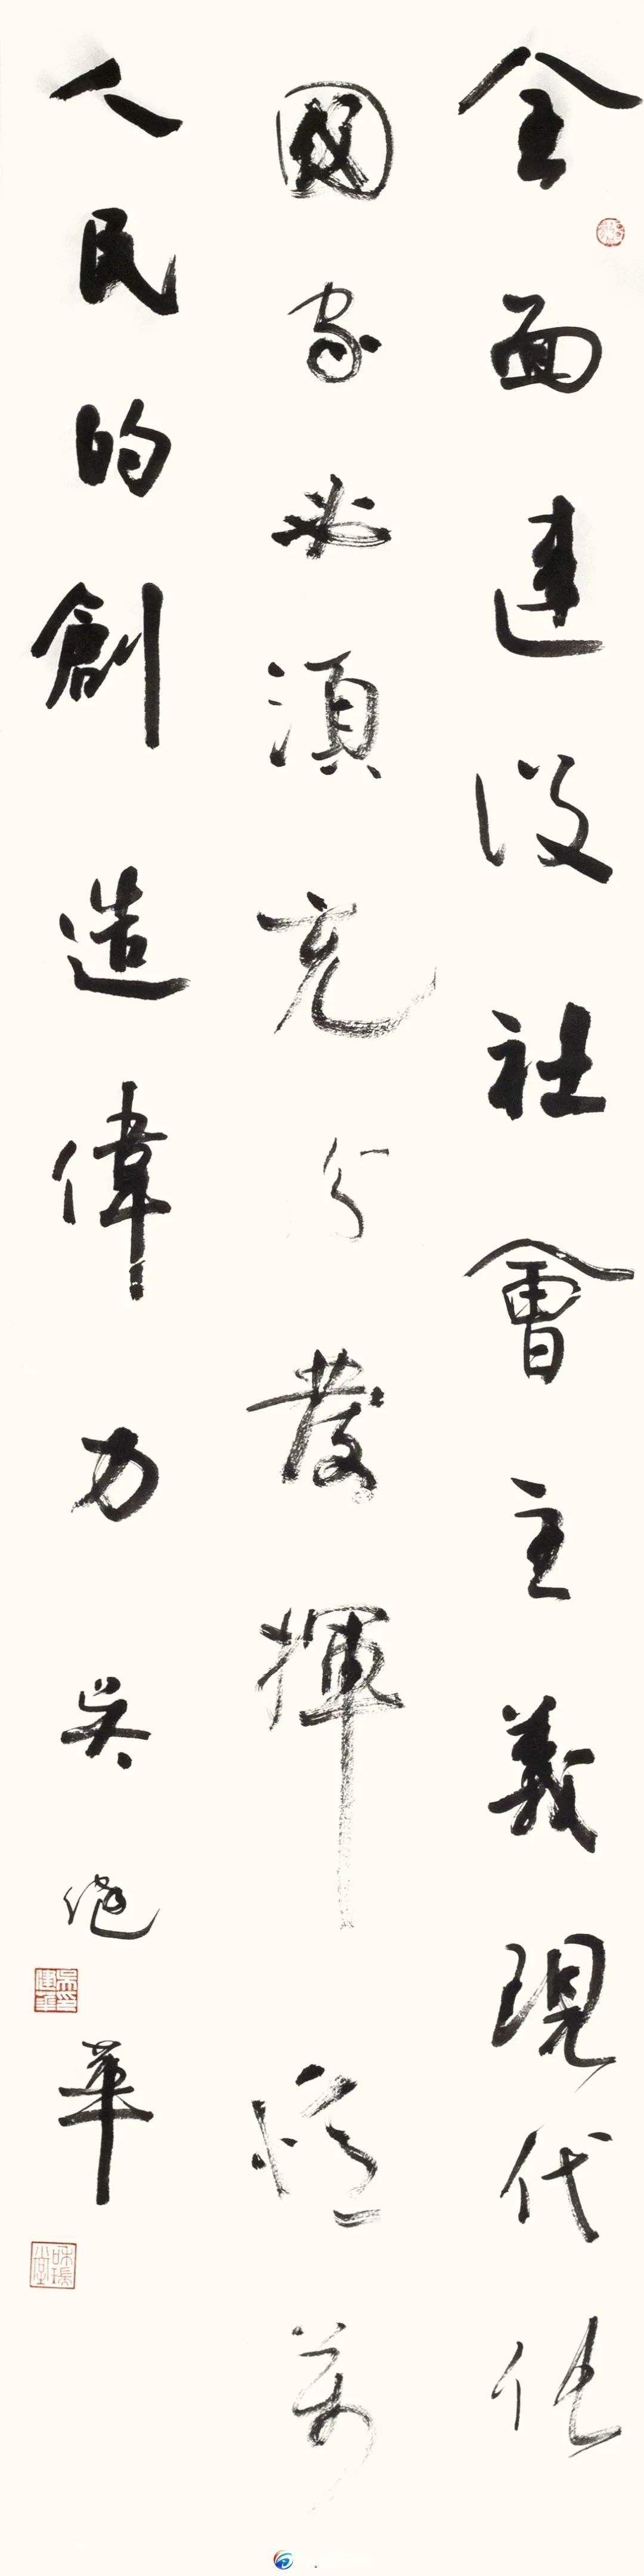 全面建設社會主義現代化
國家必須充分發揮億萬
人民的創造偉力 吴健華